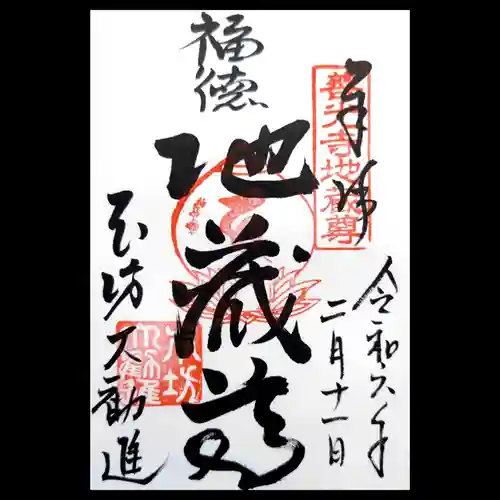 奉拝
善光寺地蔵尊
令和六年
二月十一日
福徳
地蔵尊
本坊大勧進